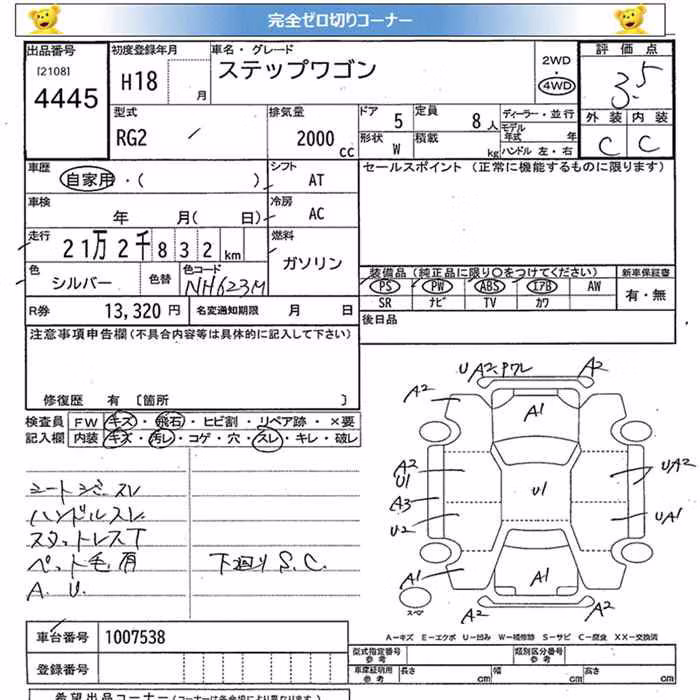 完全ゼロ切りコーナー
出品番号 初度登録年月 車名・グレード 評価点
[2108] 4445 H18 月 ステップワゴン 2WD 4WD 3.5
型式 排気量 ドア 5 定員 8人 ディーラー・並行 外装 内装
RG2 2000 cc 形状 W 積載 kg モデル年式 年 ハンドル 左・右 C C
車歴 自家用・( ) シフト AT セールスポイント (正常に機能するものに限ります)
車検 年 月( 日) 冷房 AC
走行 21万2千832 km 燃料 ガソリン
色 シルバー 色替 色コード NH623M
装備品(純正品に限り〇をつけてください) 新車保証書
PS PW ABS エアB AW 有・無
SR ナビ TV カワ
R券 13,320 円 名変通知期限 月 日 後日品
注意事項申告欄(不具合内容等は具体的に記入して下さい)
修復歴 有 [箇所 ]
検査員 FW キズ・飛石・ヒビ割・リペア跡・×要
記入欄 内装 キズ・汚レ・コゲ・穴・スレ・キレ・破レ
シートシミ・スレ
ハンドルスレ
スタットレスT
ペット毛有 下廻りS.C.
A.U.
UA2.ワレ A2
A2 A1
A2 U1 U1 UA2
A3
U2 UA1
A1 A1
スペア A2 A2
A-キズ E-エクボ U-凹み W-補修跡 S-サビ C-腐食 XX-交換済
車台番号 1007538
登録番号
型式指定番号 参考 類別区分番号 参考
車庫証明用 参考 長さ cm 幅 cm 高さ cm
希望出品コーナー